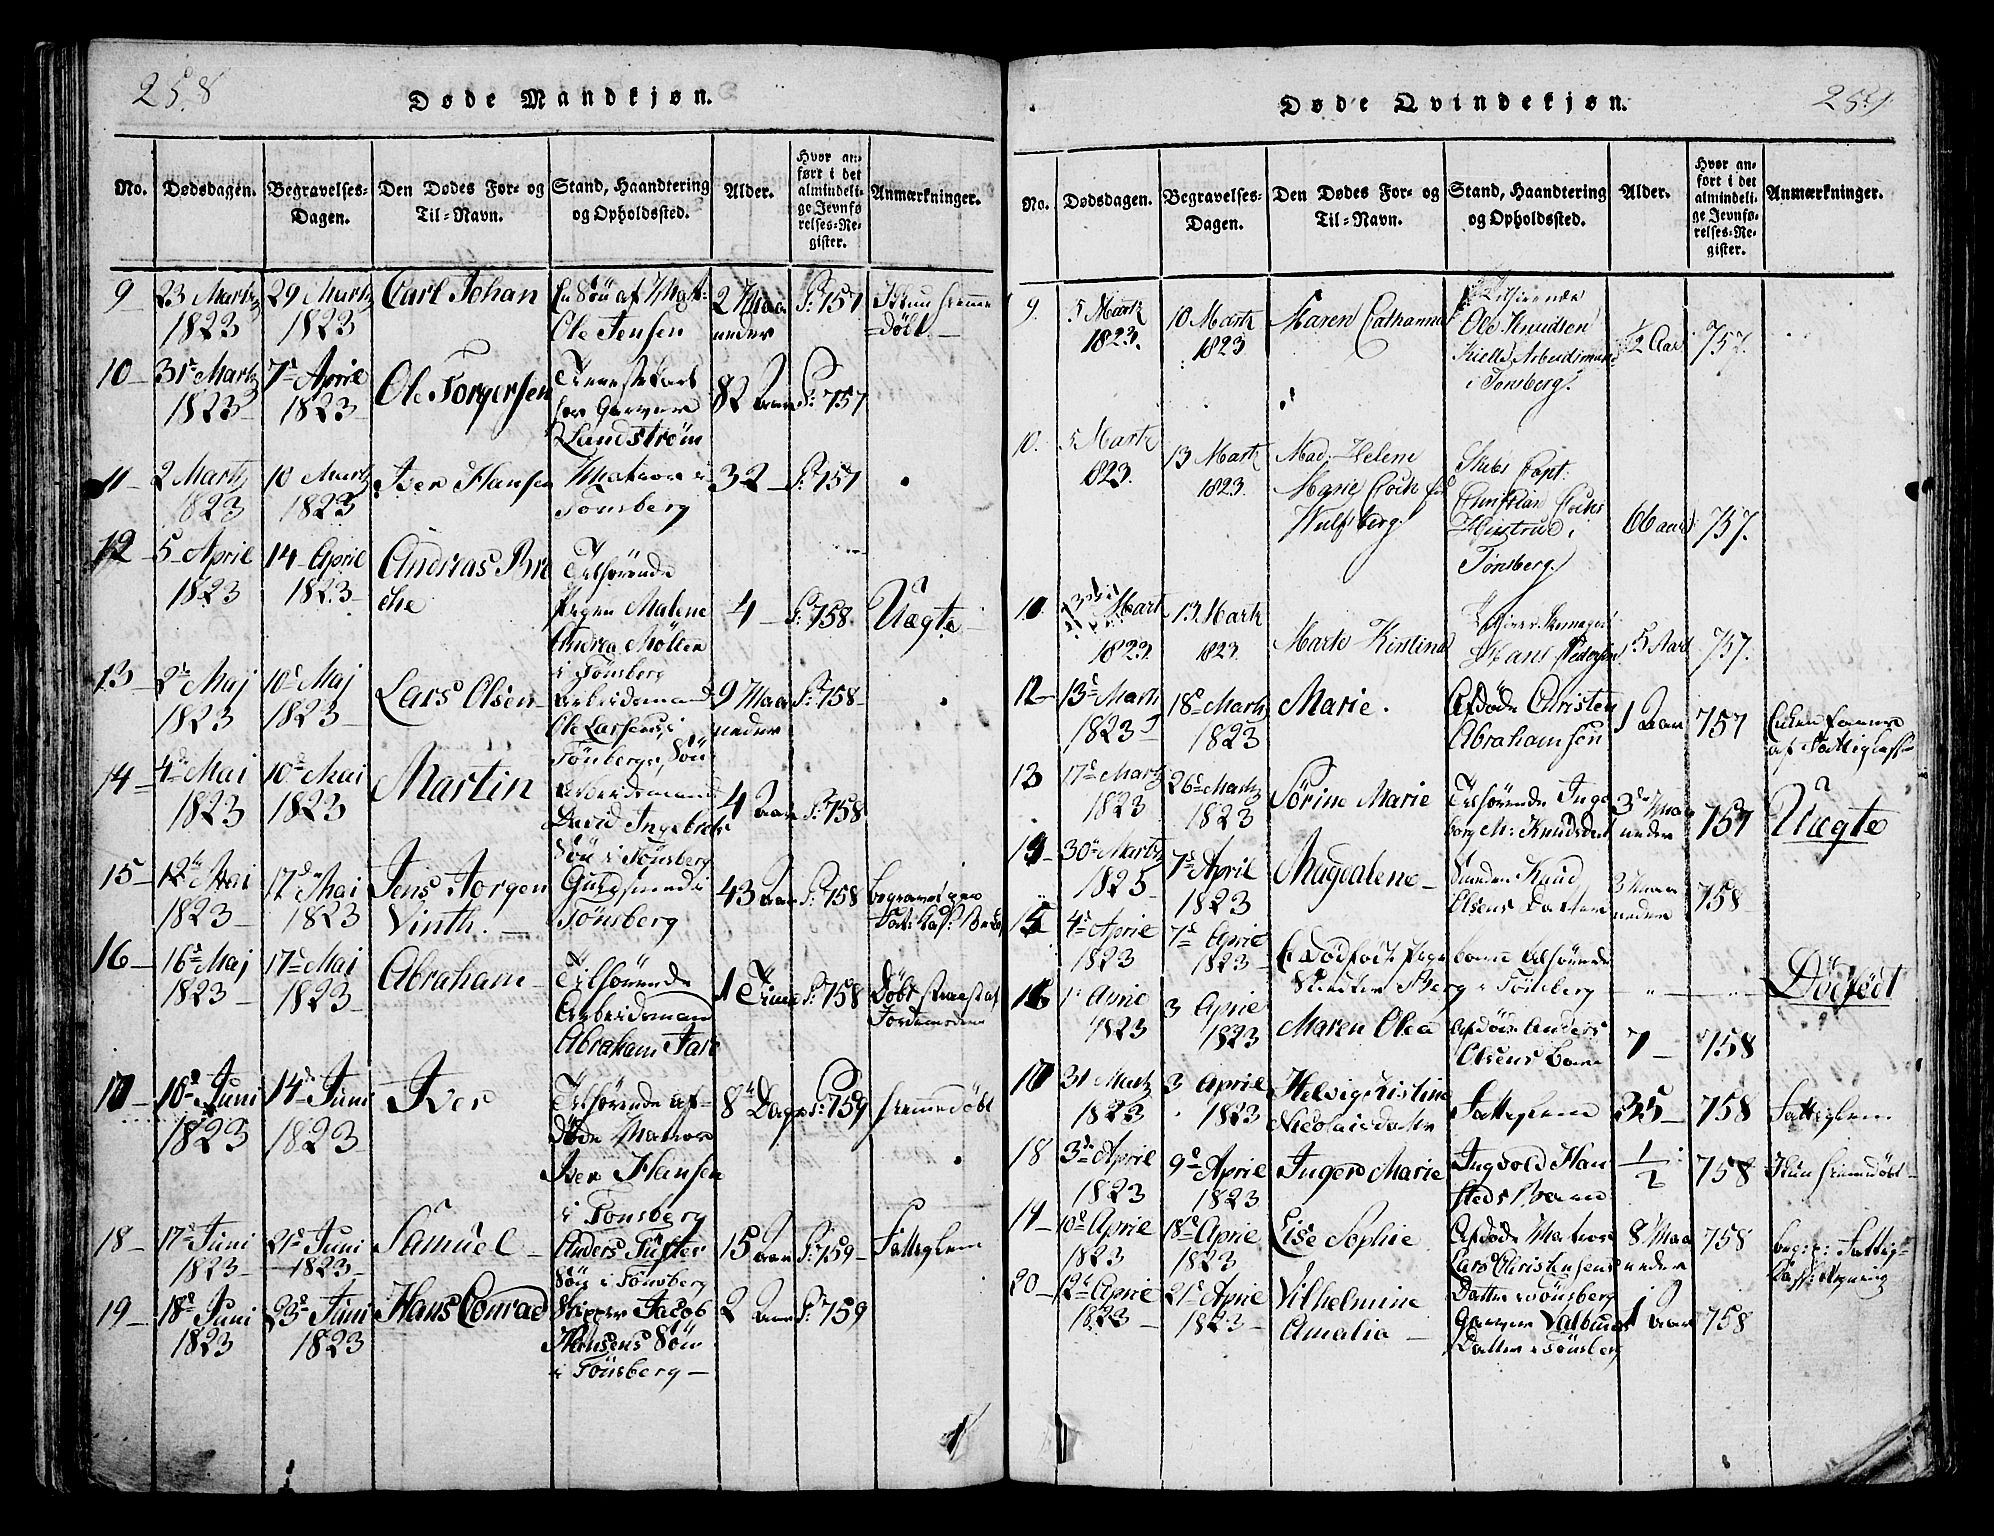 258
Døde Mandkjøn.
No. Dødsdagen. Begravelses-Dagen. Den Dødes For- og Til-Navn. Stand, Haandtering og Opholdssted. Alder. Hvor anført i det almindelige Jevnførelses-Register. Anmærkninger.
9 23 Martz 29 Martz Carl Johan En Søn af Mat: 2 Maa P: 757
1823 1823 Ole Jensen neder døbt
10 31 Martz 7 April Ole Torgersen
1823 1823 82 Aar P: 757
Landstrøm
11 2 Martz 10 Martz Iver Hansen Matros i 32 P: 757
1823 1823 Tønsberg
12 5 April 14 April Andreas Tilhørende
1823 1823 Pigen Malene 4 P: 758. Uægte
Andrea
i Tønsberg
13 2 Maj 10 Maj Lars Olsen Arbeidsmand 9 Maa P: 758
1823 1823 Ole Larsens i neder
Tønsberg Søn
14 4 Mai 10 Mai Martin Arbeidsmand 4 Aar P: 758
1823 1823 David Ingebrets
Søn i Tønsberg
15 12 Mai 17 Mai Jens Jørgen Guldsmed i 43 Aar P: 758
1823 1823 Vinth. Tønsberg
16 16 Maj 17 Maj Abraham Tilhørende 1 Time P: 758 Døbt straxt af
1823 1823 Arbeidsmand Jordemoderen
Abraham
17 10 Juni 14 Juni Iver Tilhørende af- 8 Dage P: 759 hiemmedøbt
1823 1823 døde Matros
Iver Hansen
i Tønsberg
18 17 Juni 21 Juni Samuel Anders 15 Aar P: 759 Fattiglem
1823 1823 Søn i Tønsberg
19 18 Juni 23 Juni Hans Conrad Skipper Jacob 2 Aar P: 759
1823 1823 Hansens Søn
i Tønsberg
259
Døde Qvindekjøn.
No. Dødsdagen. Begravelses-Dagen. Den Dødes For- og Til-Navn. Stand, Haandtering og Opholdssted. Alder. Hvor anført i det almindelige Jevnførelses-Register. Anmærkninger.
9. 5 Martz 10 Martz Maren Cathanna Tilhørende
1823. 1823 Ole Knudsen 1/2 Aar 757.
Arbeidsmand
i Tønsberg.
10. 5 Martz 13 Martz Mad. Helene Skibs Capt.
1823. 1823. Marie Coch Christian Cochs
Wulfsberg Hustrue i 66 aar 757.
Tønsberg
Mart 13 Martz
1823 1823 Marte Kirstina Hans Pedersen 5 Aar 757.
12 13 Martz 18 Martz Marie. Afdøde Christen 1 Aar 757
1823 1823 Abrahamsen
13 17 Martz 26 Martz Sørine Marie Tilhørende Inge 3 Maa
1823 1823 borg M: Knudsdat neder 757 Uægte
30 Martz 7 April Magdalene Knud 3 Maa
1823 Olsens Datter neder 758
15 4 April 7 April Et Dødfødt Pige barn tilhørende
1823 1823 Berg i Tønsberg Dødfødt
16 1 April 3 April Maren Olea Afdøde Anders 7 758
1823 1823 Olsens Barn
17 31 Martz 3 April Helvig Kistine
1823 1823 Nicolaisdatter Fattiglem 35 758 Fattiglem
18 3 April 9 April Inger Marie Ingvold Han 1/2 758 Kun hiemmedøbt
1823 1823 steds Barn
19 10 April 18 April Lise Sophie Afdøde Matros 8 Maa 758
1823 1823 Lars Christensens neder
Datter i Tønsberg
20 12 April 21 April Vilhelmine 1 Aar 758
1823 1823 Amalia Datter i Tønsberg